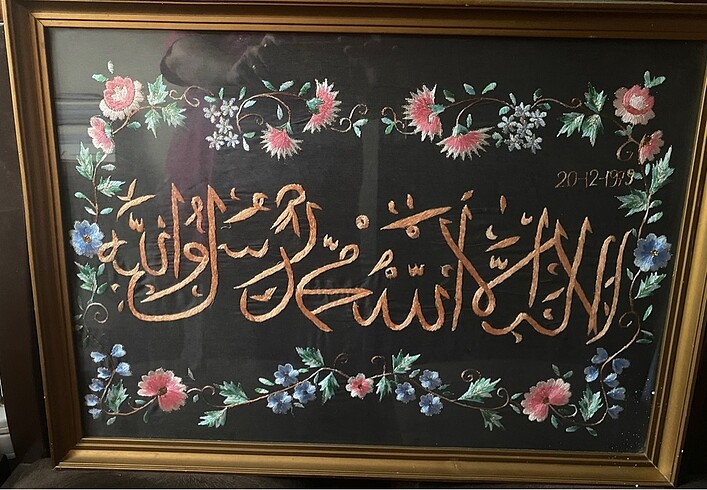 20-12-1979
لا اله الا الله محمد رسول الله